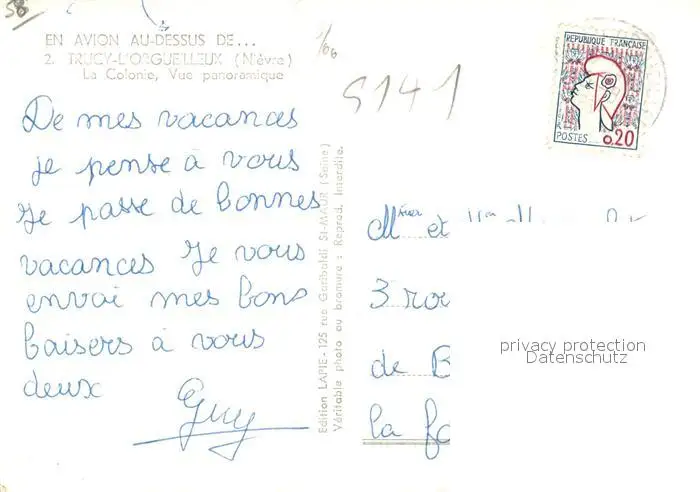 58
EN AVION AU-DESSUS DE...
2. TRUCY-L'ORGUEILLEUX (Nièvre)
La Colonie, Vue panoramique
1/66
5141
REPUBLIQUE FRANÇAISE
POSTES
0.20
De mes vacances
je pense à vous
Je passe de bonnes
vacances Je vous
envoi mes bons
baisers à vous
deux
Guy
Edition LAPIE - 125 rue Garibaldi St-MAUR (Seine)
Véritable photo au bromure : Reprod. interdite.
et
3 rou
de B
la fo
privacy protection
Datenschutz